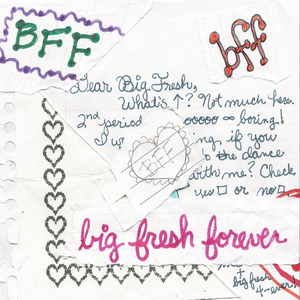 BFF
bff
Dear Big Fresh,
What's ↑? Not much here.
2nd period ∞ boring!
I w ng, if you
o the dance
with me? Check
yes □ or no □
BFF
big fresh forever
+
big fresh
4-ever!